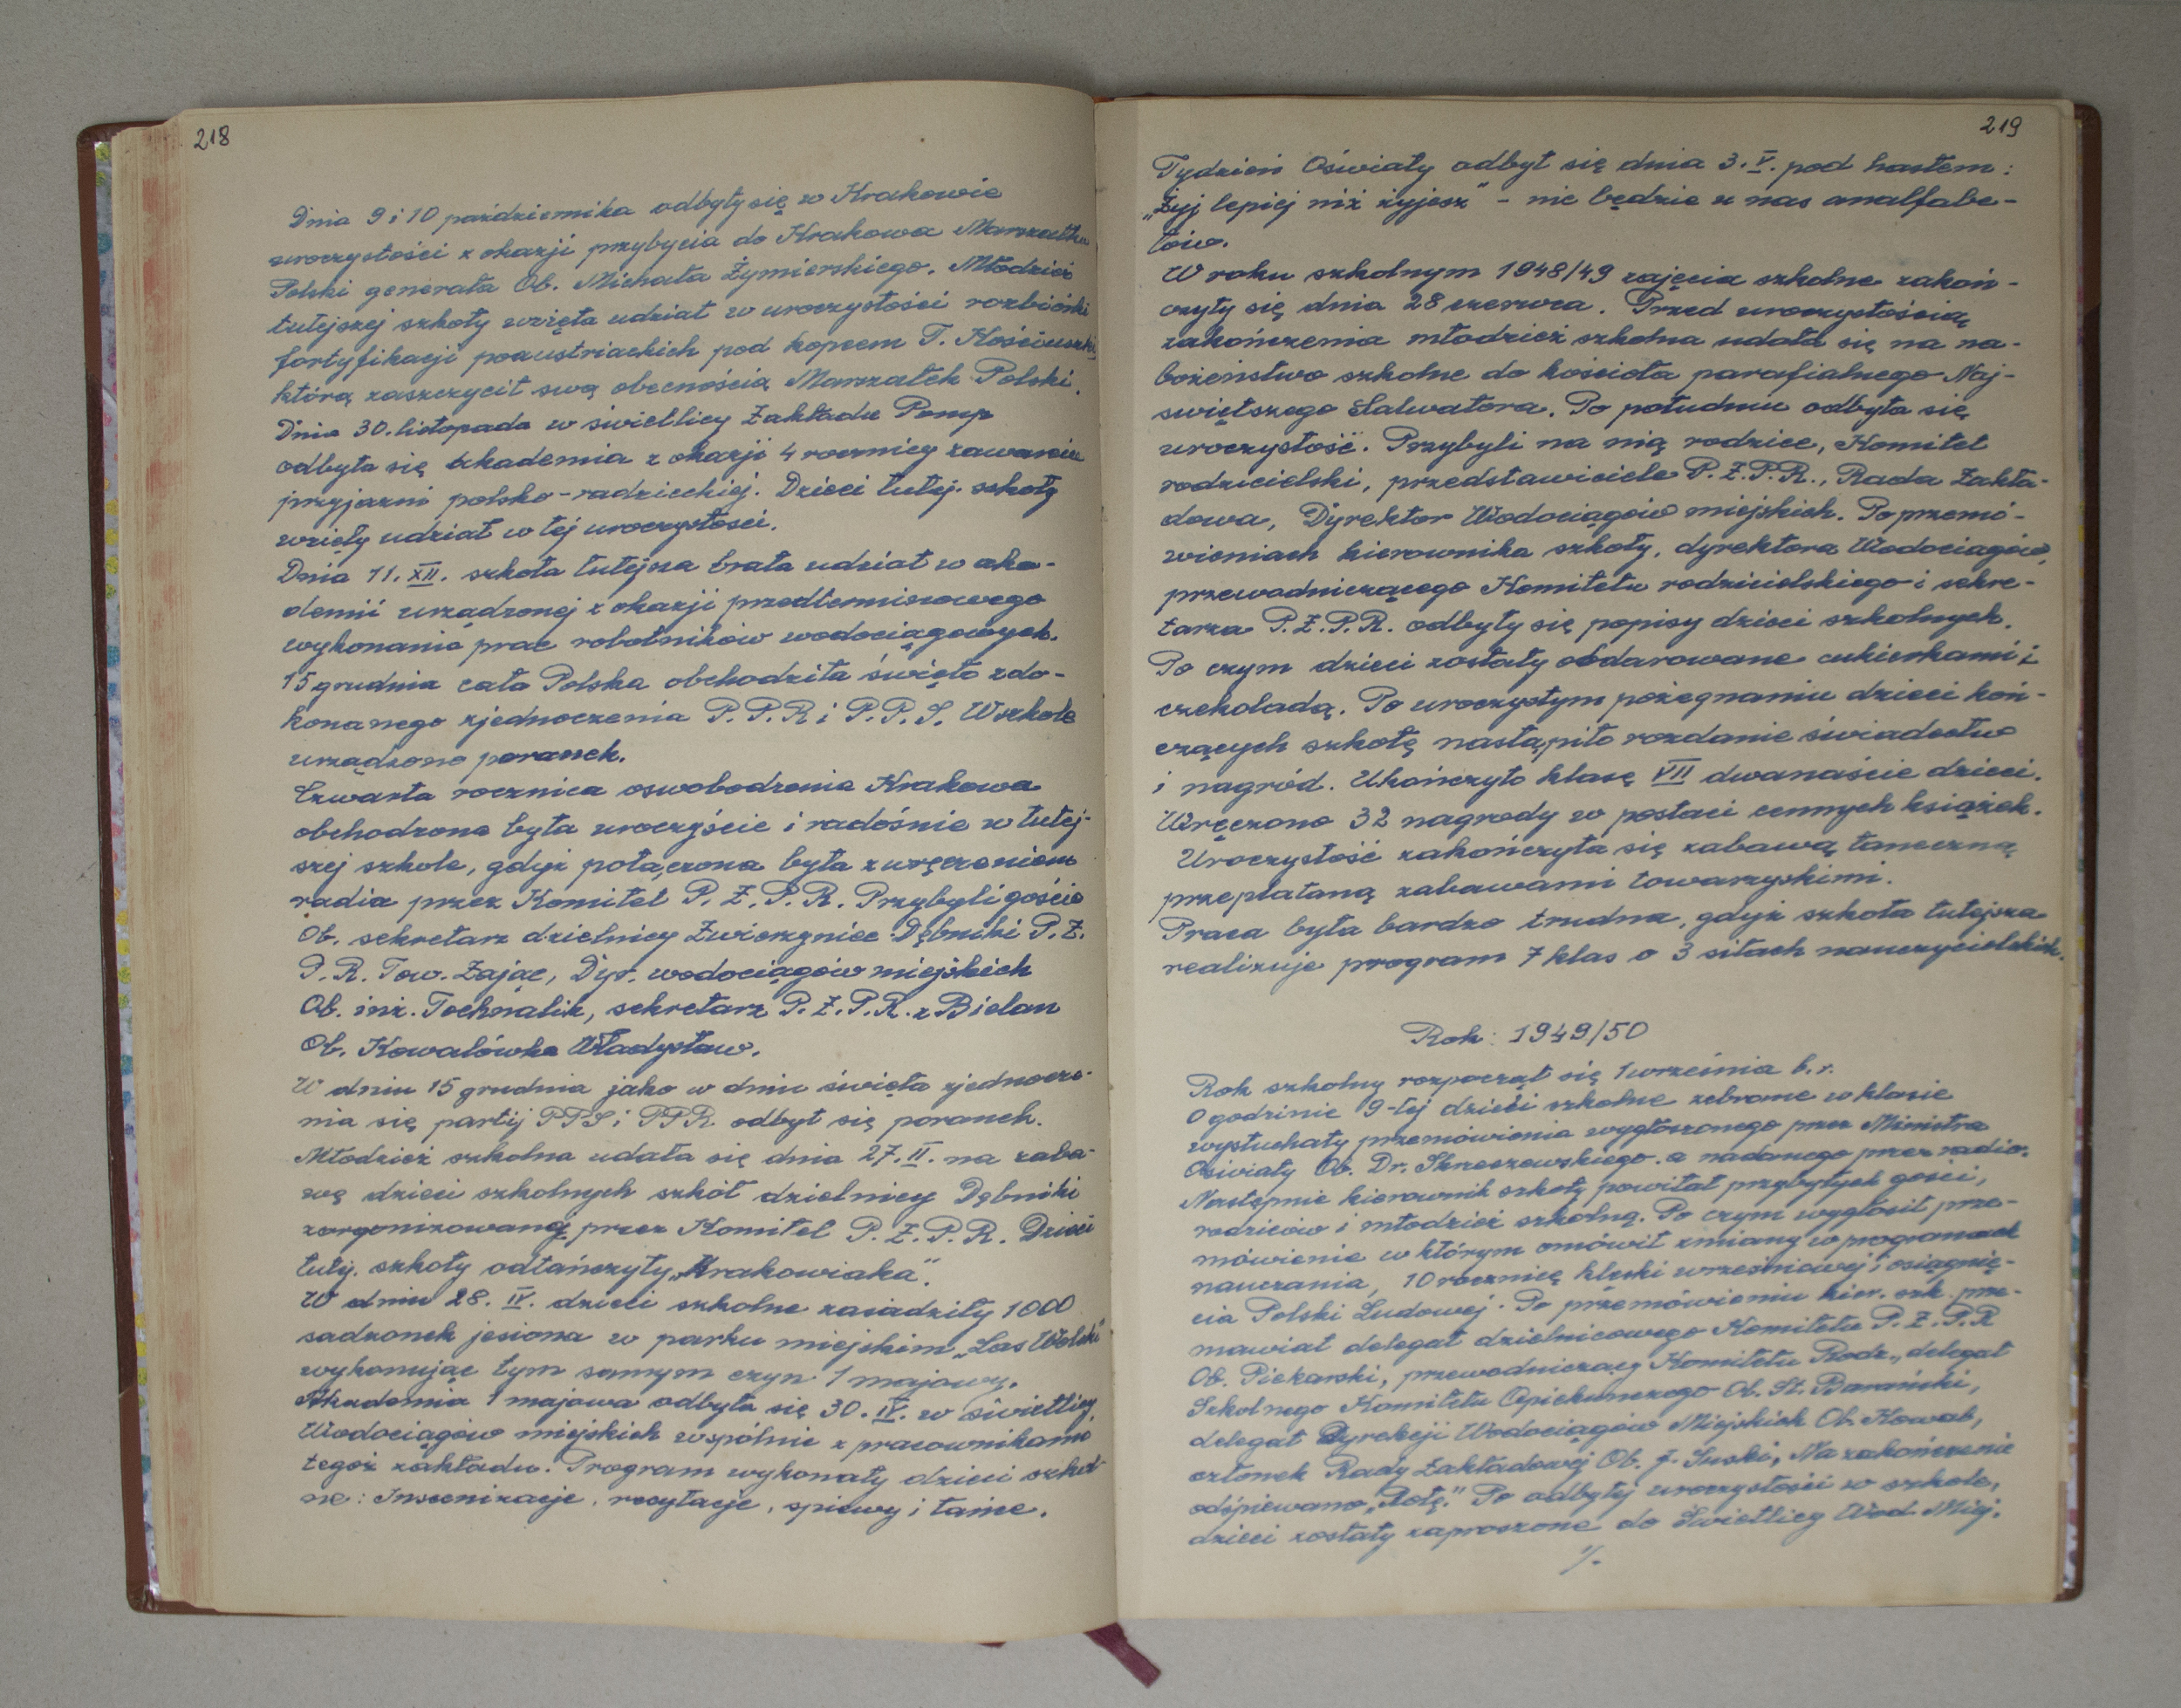 218
Dnia 9 i 10 października odbyły się w Krakowie
uroczystości z okazji przybycia do Krakowa Marszałka
Polski generała Ob. Michała Żymierskiego. Młodzież
tutejszej szkoły wzięła udział w uroczystości rozbiórki
fortyfikacji poaustriackich pod kopcem T. Kościuszki
którą zaszczycił swą obecnością Marszałek Polski.
Dnia 30. listopada w świetlicy Zakładu Pomp
odbyła się Akademia z okazji 4 rocznicy zawarcia
przyjazni polsko-radzieckiej. Dzieci tutej. szkoły
wzięły udział w tej uroczystosci.
Dnia 11. XII. szkoła tutejsza brała udział w aka-
demii urządzonej z okazji przedterminowego
wykonania prac robotników wodociągowych.
15 grudnia cała Polska obchodziła święto zdo-
konanego zjednoczenia P.P.R i P.P.S. W szkole
urządzono poranek.
Czwarta rocznica oswobodzenia Krakowa
obchodzona była uroczyście i radośnie w tutej-
szej szkole, gdyż połączona była z wręczeniem
radia przez Komitet P.Z.P.R. Przybyli goście
Ob. sekretarz dzielnicy Zwierzyniec Dębniki P.Z.
P.R. Tow. Zając, Dyr. wodociągów miejskich
Ob. inż. Tochnalik, sekretarz P.Z.P.R. z Bielan
Ob. Kowalówka Władysław.
W dniu 15 grudnia jako w dniu święta zjednocze-
nia się partij PPS i PPR. odbył się poranek.
Młodzież szkolna udała się dnia 27. II. na zaba-
wę dzieci szkolnych szkół dzielnicy Dębniki
zorganizowaną przez Komitet P.Z.P.R. Dzieci
tutej. szkoły odtańczyły „Krakowiaka".
W dniu 28. IV. dzieci szkolne zasadziły 1000
sadzonek jesiona w parku miejskim „Las Wolski"
wykonując tym samym czyn 1 majowy.
Akademia 1 majowa odbyła się 30. IV. w świetlicy
Wodociągów miejskich wspólnie z pracownikami
tegoż zakładu. Program wykonały dzieci szkol-
ne: Inscenizacje, recytacje, spiewy i tańce.
219
Tydzień Oświaty odbył się dnia 3. V. pod hasłem:
„Żyj lepiej niż żyjesz" - nie będzie u nas analfabe-
tów.
W roku szkolnym 1948/49 zajęcia szkolne zakoń-
czyły się dnia 28 czerwca. Przed uroczystością
zakończenia młodzież szkolna udała się na na-
bożeństwo szkolne do kościoła parafialnego Naj-
swiętszego Salwatora. Po południu odbyła się
uroczystość. Przybyli na nią rodzice, Komitet
rodzicielski, przedstawiciele P.Z.P.R., Rada Zakła-
dowa, Dyrektor Wodociągów miejskich. Po przemó-
wieniach kierownika szkoły, dyrektora Wodociągów,
przewodniczącego Komitetu rodzicielskiego i sekre-
tarza P.Z.P.R. odbyły się popisy dzieci szkolnych.
Po czym dzieci zostały obdarowane cukierkami i
czekoladą. Po uroczystym pożegnaniu dzieci koń-
czących szkołę nastąpiło rozdanie świadectw
i nagród. Ukończyło klasę VII dwanaście dzieci.
Wręczono 32 nagrody w postaci cennych książek.
Uroczystość zakończyła się zabawą taneczną
przeplataną zabawami towarzyskimi.
Praca była bardzo trudna, gdyż szkoła tutejsza
realizuje program 7 klas o 3 siłach nauczycielskich.
Rok: 1949/50
Rok szkolny rozpoczął się 1 września b.r.
O godzinie 9-tej dzieci szkolne zebrane w klasie
wysłuchały przemówienia wygłoszonego przez Ministra
Oświaty Ob. Dr. Skrzeszewskiego a nadanego przez radio.
Następnie kierownik szkoły powitał przybyłych gości,
rodziców i młodzież szkolną. Po czym wygłosił prze-
mówienie w którym omówił zmiany w programach
nauczania, 10 rocznicę klęski wrześniowej i osiągnię-
cia Polski Ludowej. Po przemówieniu kier. szk. prze-
mawiał delegat dzielnicowego Komitetu P.Z.P.R
Ob. Piekarski, przewodniczący Komitetu Rodz., delegat
Szkolnego Komitetu Opiekunczego Ob. St. Barański,
delegat Dyrekcji Wodociągów Miejskich Ob. Kowal,
członek Rady Zakładowej Ob. J. Suski, Na zakończenie
odśpiewano „Rotę." Po odbytej uroczystości w szkole,
dzieci zostały zaproszone do Świetlicy Wod. Miej.
·/.